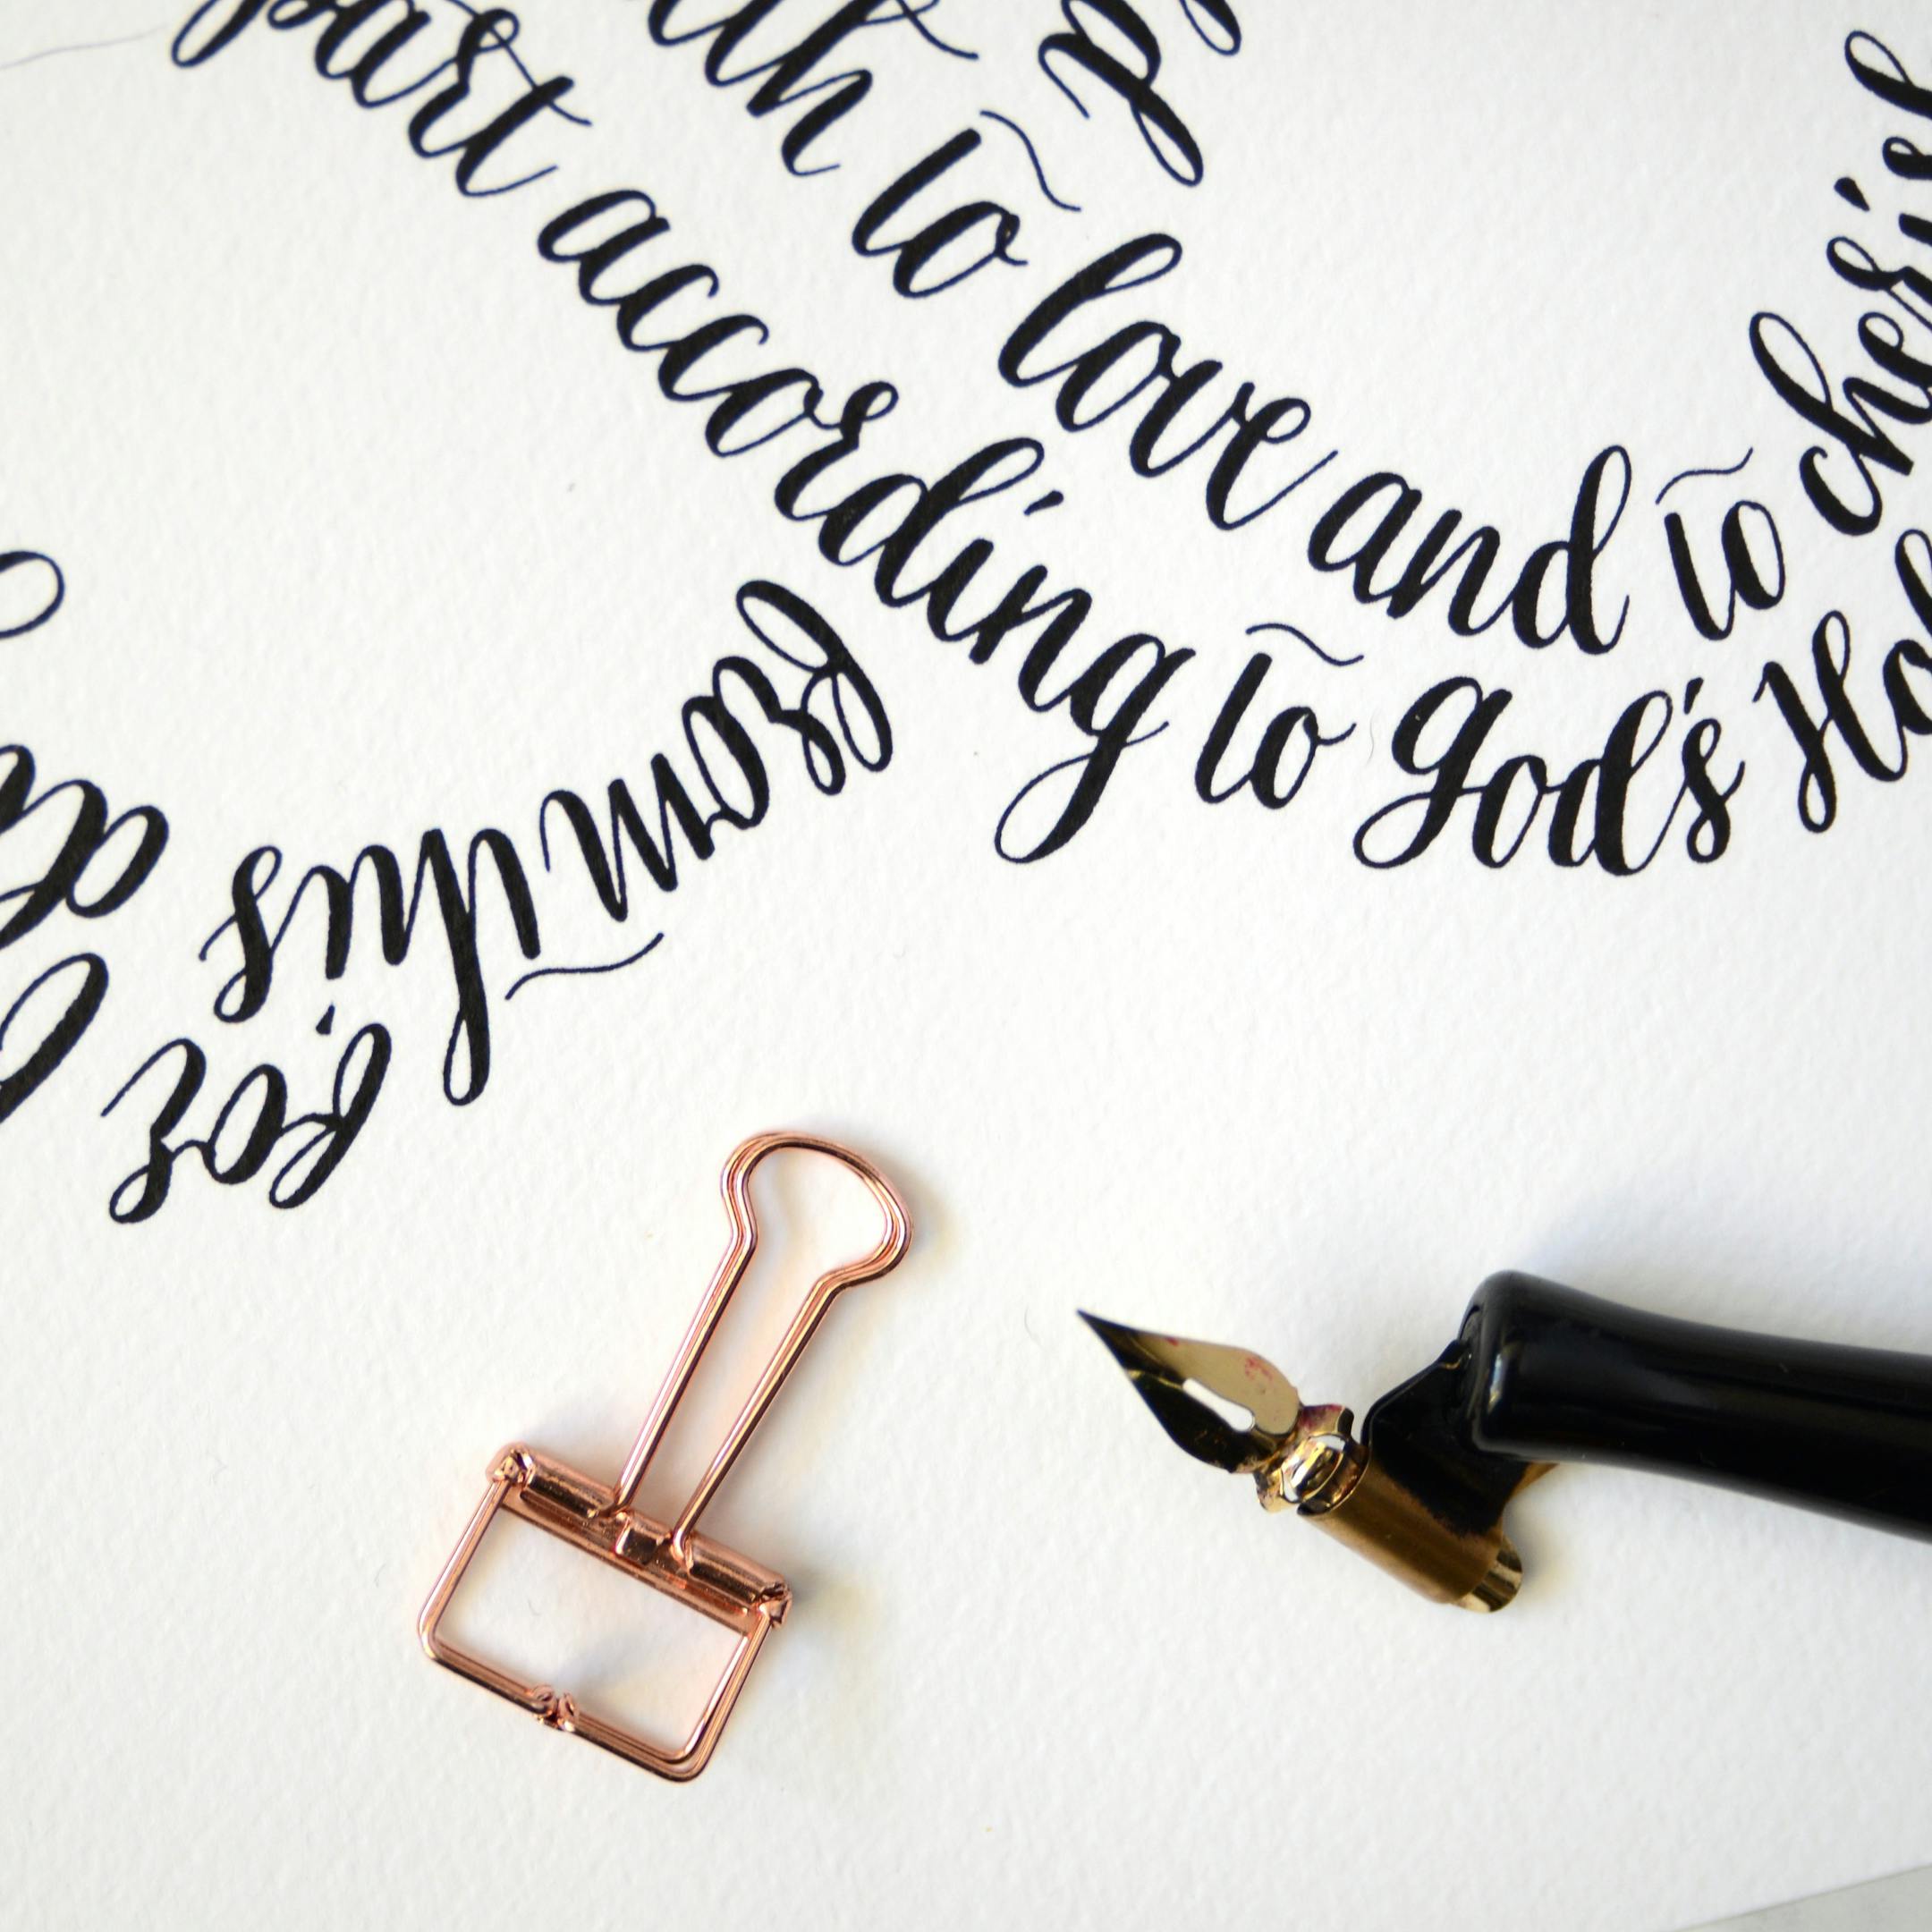 to love and to cherish
part according to God's
from this
for